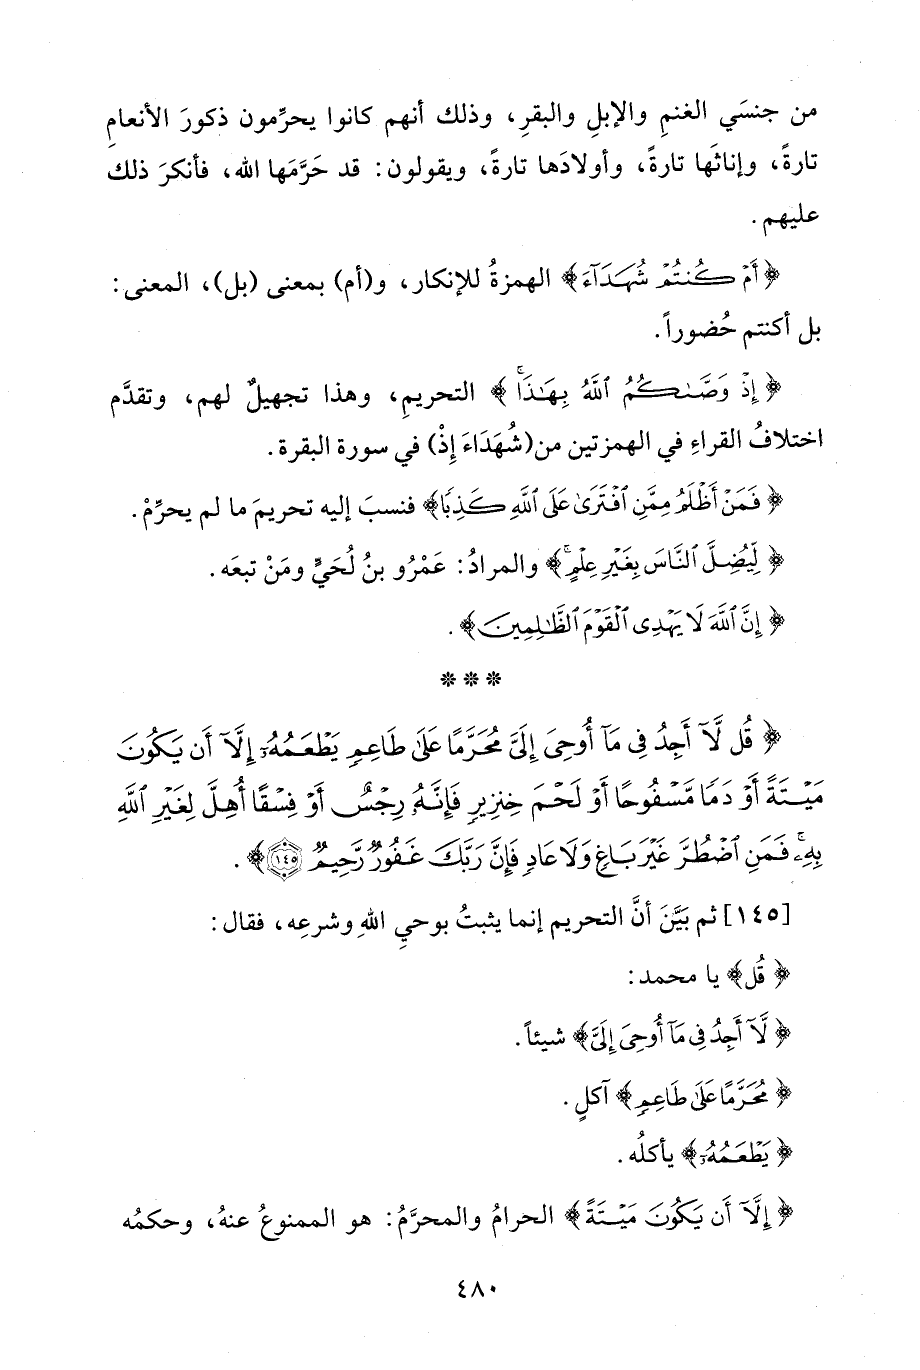 من جنسَي الغنمِ والإبلِ والبقرِ، وذلك أنهم كانوا يحرِّمون ذكورَ الأنعامِ
تارةً، وإناثَها تارةً، وأولادَها تارةً، ويقولون: قد حَرَّمَها الله، فأنكرَ ذلك
عليهم.
﴿أَمْ كُنتُمْ شُهَدَآءَ﴾ الهمزةُ للإنكار، و(أم) بمعنى (بل)، المعنى:
بل أكنتم حُضوراً.
﴿إِذْ وَصَّىٰكُمُ ٱللَّهُ بِهَٰذَا ۚ﴾ التحريمِ، وهذا تجهيلٌ لهم، وتقدَّم
اختلافُ القراءِ في الهمزتين من(شُهَدَاءَ إِذْ) في سورة البقرة.
﴿فَمَنْ أَظْلَمُ مِمَّنِ ٱفْتَرَىٰ عَلَى ٱللَّهِ كَذِبًا﴾ فنسبَ إليه تحريمَ ما لم يحرِّمْ.
﴿لِّيُضِلَّ ٱلنَّاسَ بِغَيْرِ عِلْمٍ ۚ﴾ والمرادُ: عَمْرُو بنُ لُحَيٍّ ومَنْ تبعَه.
﴿إِنَّ ٱللَّهَ لَا يَهْدِى ٱلْقَوْمَ ٱلظَّٰلِمِينَ﴾.
* * *
﴿قُل لَّآ أَجِدُ فِى مَآ أُوحِىَ إِلَىَّ مُحَرَّمًا عَلَىٰ طَاعِمٍ يَطْعَمُهُۥٓ إِلَّآ أَن يَكُونَ
مَيْتَةً أَوْ دَمًا مَّسْفُوحًا أَوْ لَحْمَ خِنزِيرٍ فَإِنَّهُۥ رِجْسٌ أَوْ فِسْقًا أُهِلَّ لِغَيْرِ ٱللَّهِ
بِهِۦ ۚ فَمَنِ ٱضْطُرَّ غَيْرَ بَاغٍ وَلَا عَادٍ فَإِنَّ رَبَّكَ غَفُورٌ رَّحِيمٌ ١٤٥﴾.
[١٤٥] ثم بَيَّنَ أنَّ التحريم إنما يثبتُ بوحيِ اللهِ وشرعِه، فقال:
﴿قُل﴾ يا محمد:
﴿لَّآ أَجِدُ فِى مَآ أُوحِىَ إِلَىَّ﴾ شيئاً.
﴿مُحَرَّمًا عَلَىٰ طَاعِمٍ﴾ آكلٍ.
﴿يَطْعَمُهُۥٓ﴾ يأكلُه.
﴿إِلَّآ أَن يَكُونَ مَيْتَةً﴾ الحرامُ والمحرَّمُ: هو الممنوعُ عنهُ، وحكمُه
٤٨٠